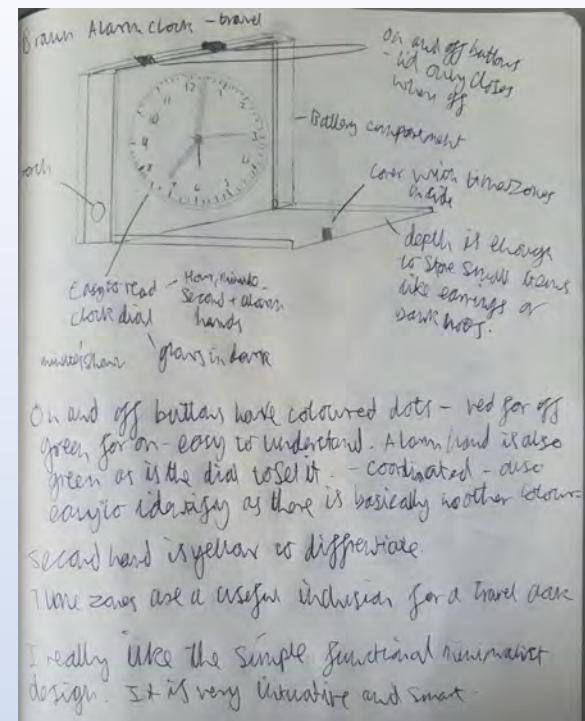 Braun Alarm Clock - travel
On and off buttons
- lid only closes
when off
- Battery compartment
cover with timezones
inside
depth is enough
to store small items
like earrings or
Easy to read
clock dial
- Hour, minute
Second + alarm
hands
glows in dark
12
1
2
3
4
5
6
7
8
9
10
11
On and off buttons have coloured dots - red for off
green for on - easy to understand. Alarm hand is also
green as is the dial to set it. - coordinated - also
easy to identify as there is basically no other colour
second hand is yellow to diffrentiate.
Time zones are a useful inclusion for a travel clock
I really like the simple functional minimalist
design. It is very intuative and smart.